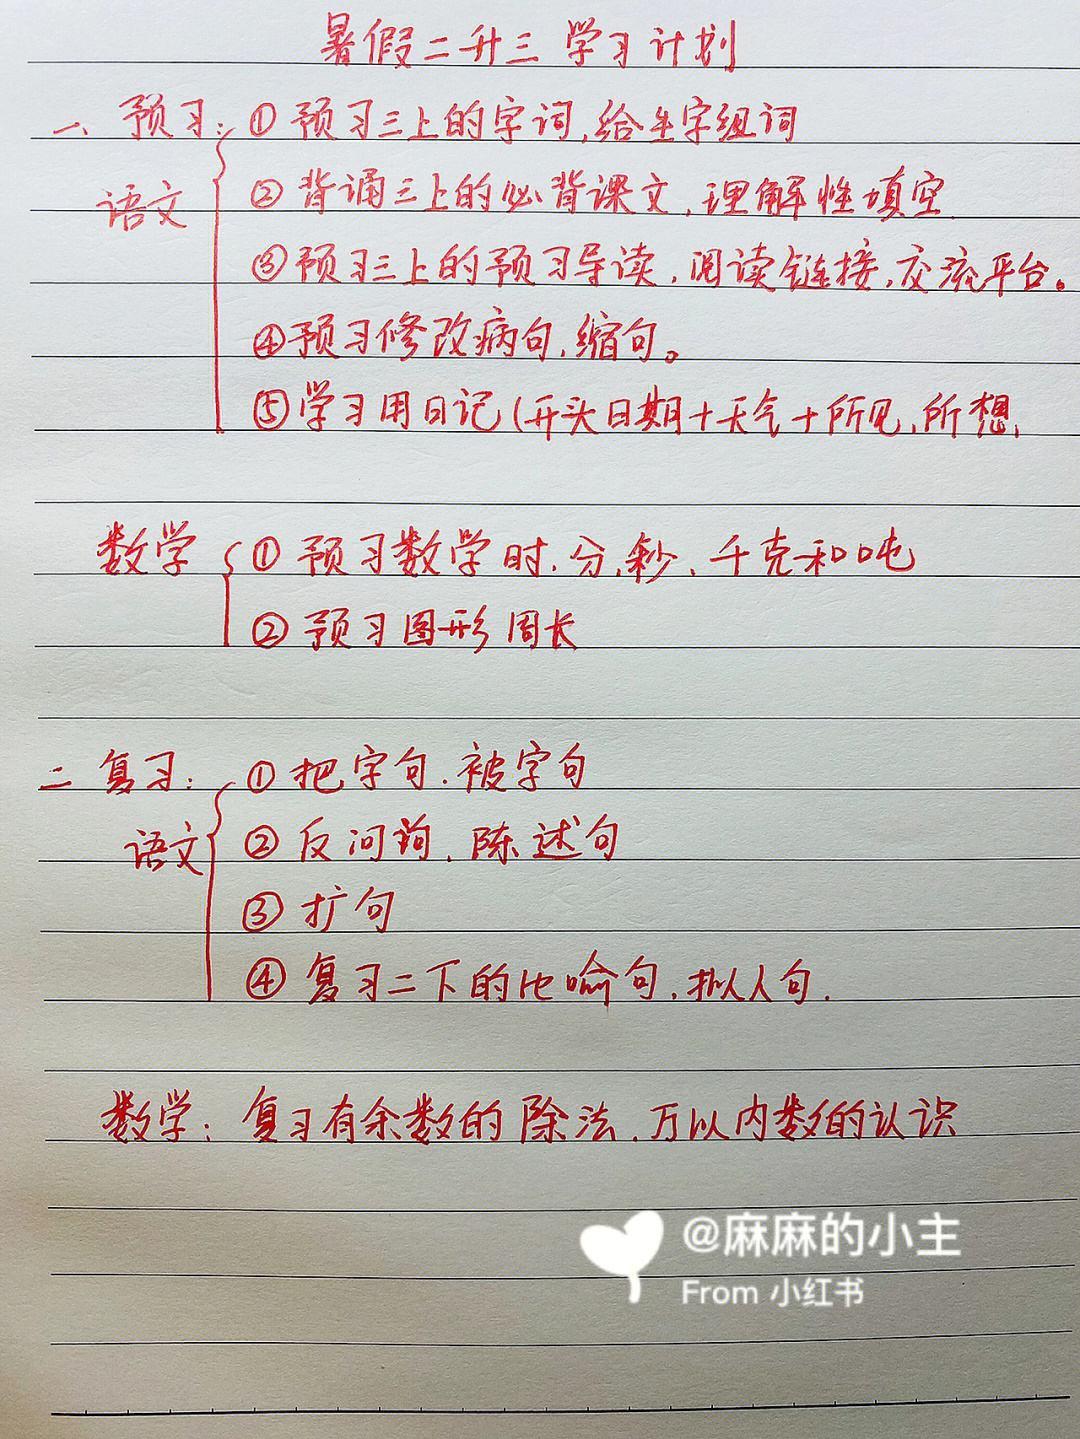 暑假二升三 学习计划
一、预习: ① 预习三上的字词,给生字组词
语文
② 背诵三上的必背课文,理解性填空
③ 预习三上的预习导读,阅读链接,交流平台。
④ 预习修改病句,缩句。
⑤ 学习用日记(开头日期+天气+所见,所想,
数学 ① 预习数学时、分、秒、千克和吨
② 预习图形周长
二 复习: ① 把字句.被字句
语文 ② 反问句、陈述句
③ 扩句
④ 复习二下的比喻句,拟人句.
数学: 复习有余数的除法,万以内数的认识
@麻麻的小主
From 小红书